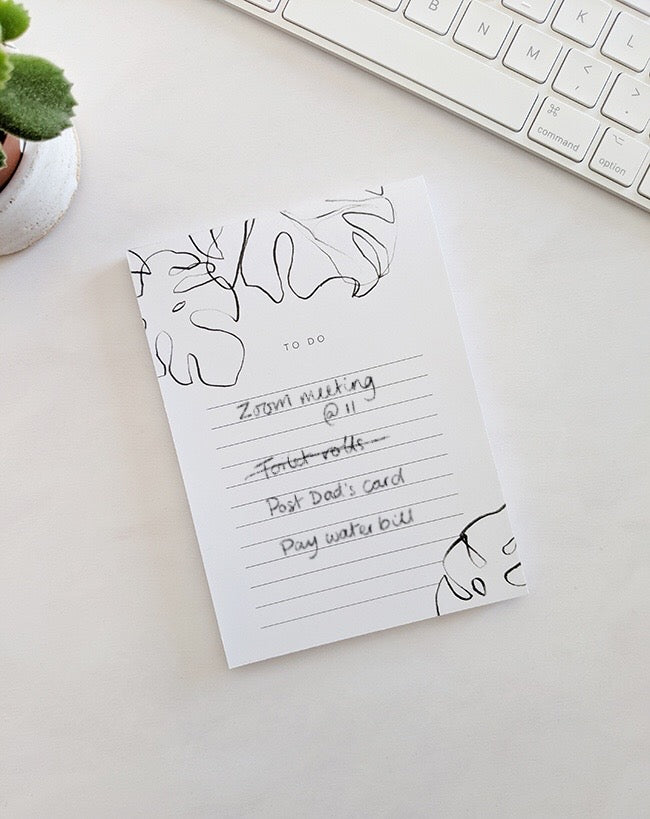 B
N
M
K
L
<
,
>
.
⌘
command
⌥
option
TO DO
Zoom meeting
@ 11
Toilet rolls
Post Dad's card
Pay water bill